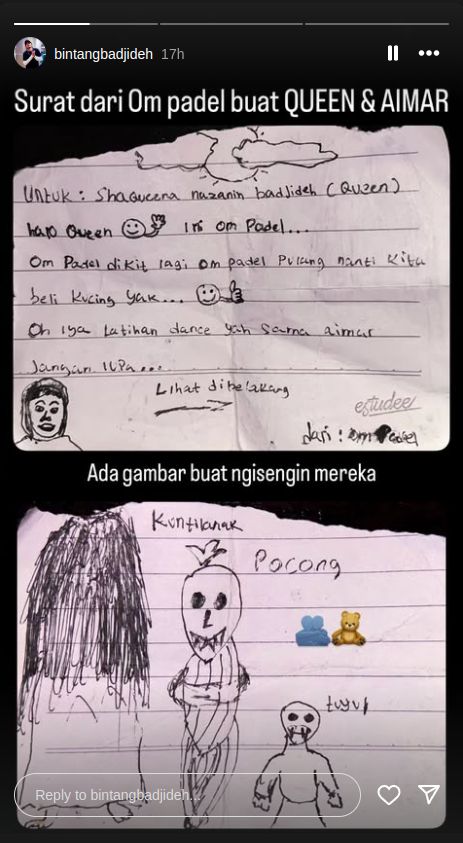 bintangbadjideh 17h
Surat dari Om padel buat QUEEN & AIMAR
UNTUK : Shaqueena nazanin badjideh (Queen)
halo Queen Ini Om Padel...
Om Padel dikit lagi om padel Pulang nanti kita
beli kucing yak...
Oh iya Latihan dance yah sama aimar
Jangan lupa...
Lihat dibelakang
estudee
dari : om Padel
Ada gambar buat ngisengin mereka
Kuntilanak
Pocong
tuyul
Reply to bintangbadjideh...